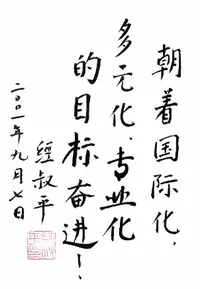 朝着国际化,
多元化、专业化
的目标奋进!
经叔平
二〇〇一年九月七日